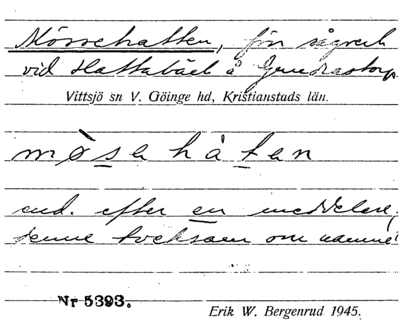 Mössehatten, förr sågverk
vid Hattabäck å Gundrastorp.
Vittsjö sn V. Göinge hd, Kristianstads län.
mòsahåtan
end. efter en meddelare;
denne tveksam om namnet
Nr 5393.
Erik W. Bergenrud 1945.